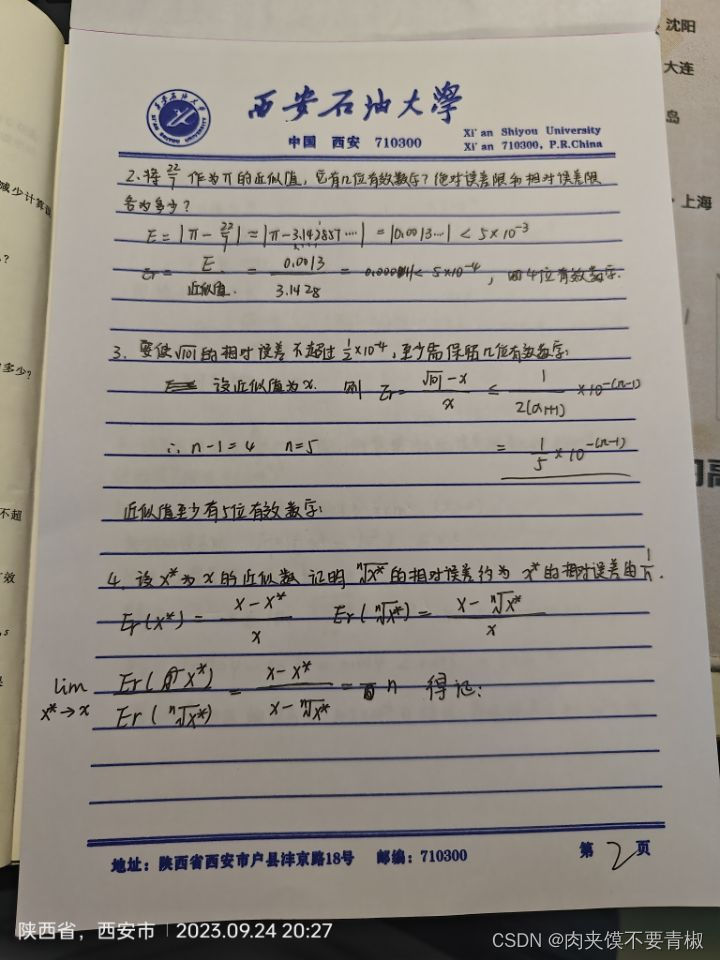 沈阳
大连
岛
上海
减少计算误
多少?
不超
效
西安石油大学
中国 西安 710300
Xi' an Shiyou University
Xi' an 710300, P.R.China
2.将 22/7 作为π的近似值,它有几位有效数字?绝对误差限和相对误差限
各为多少?
E = |π - 22/7| = |π-3.142857…| = |0.0013…| < 5×10⁻³
Er = E/近似值. = 0.0013/3.1428 = < 5×10⁻⁴, 4位有效数字.
3. 要使√101的相对误差不超过 1/2×10⁻⁴, 至少需保留几位有效数字:
设近似值为x. 则 Er = (√101 - x)/x ≤ 1/(2(a₁+1)) ×10^-(n-1)
∴ n-1=4 n=5 = 1/5 × 10^-(n-1)
近似值至少有5位有效数字:
4. 设x*为x的近似数 证明 ⁿ√x* 的相对误差约为 x*的相对误差的 1/n.
Er(x*) = (x-x*)/x Er(ⁿ√x*) = (x-ⁿ√x*)/x
lim x*→x Er(x*)/Er(ⁿ√x*) = (x-x*)/(x-ⁿ√x*) = n 得证:
地址:陕西省西安市户县沣京路18号 邮编:710300 第 2 页
陕西省,西安市 | 2023.09.24 20:27
CSDN @肉夹馍不要青椒